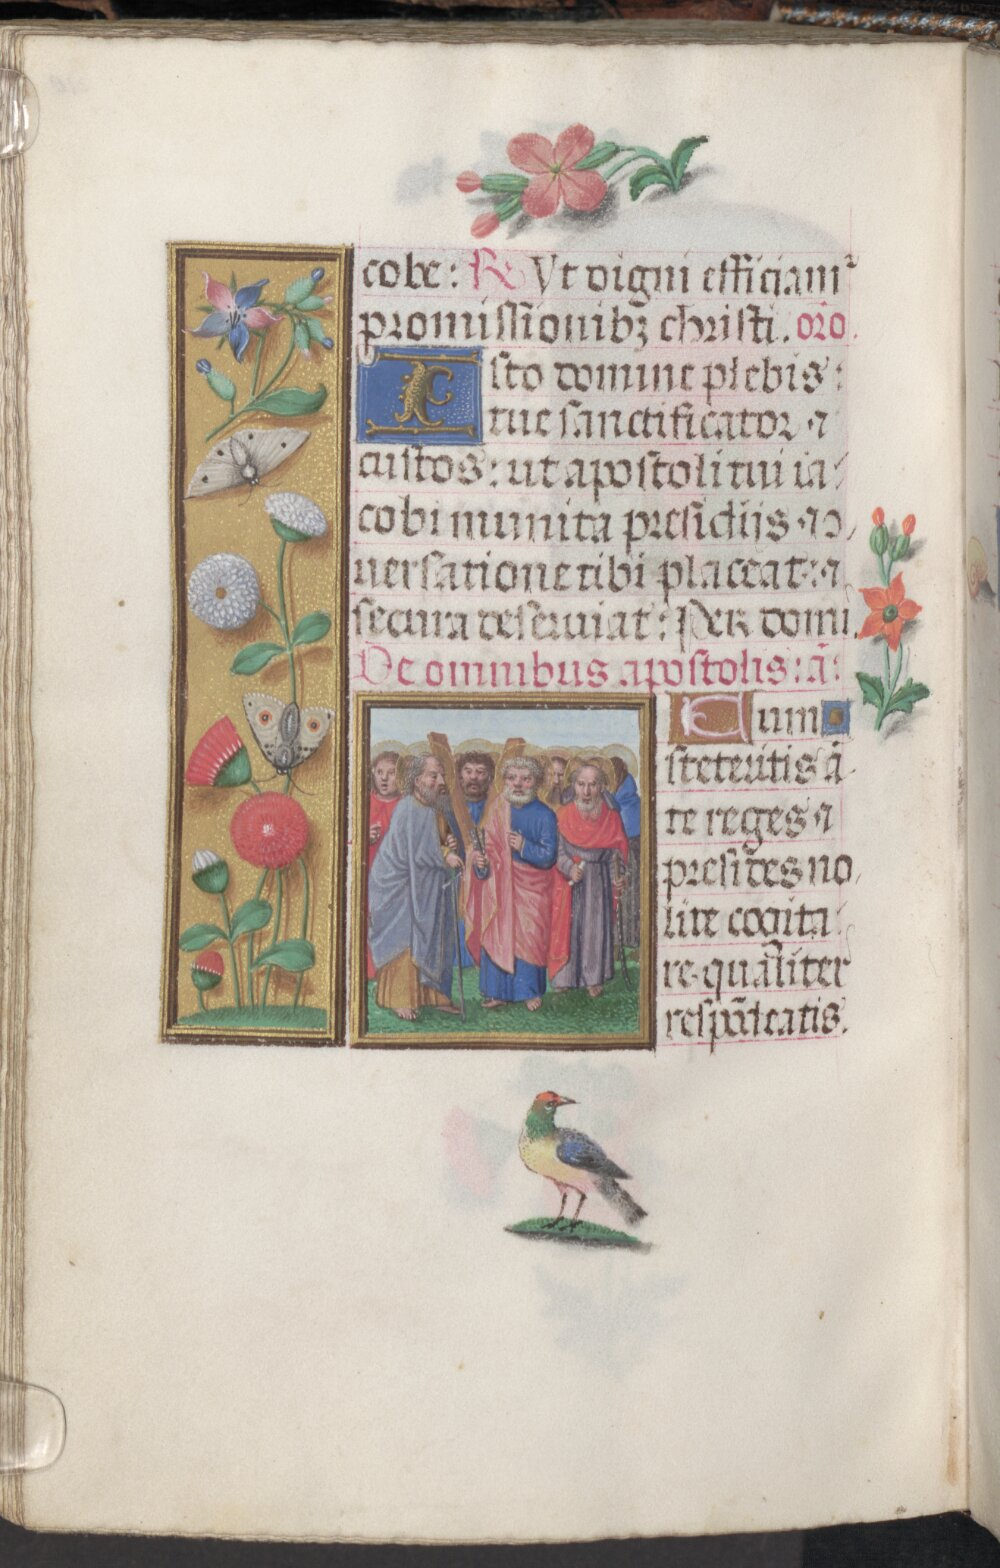 cobe: R Vt digni efficiam²
promissionibꝫ christi. oro.
Esto domine plebis:
tue sanctificator ⁊
custos: ut apostoli tui ia
cobi munita presidijs ⁊ co
nersatione tibi placeat: ⁊
secura deseruiat: Per domi
De omnibus apostolis: ā:
Cum
steteritis ā
te reges ⁊
presides no
lite cogita
re. qualiter
respōdeatis.